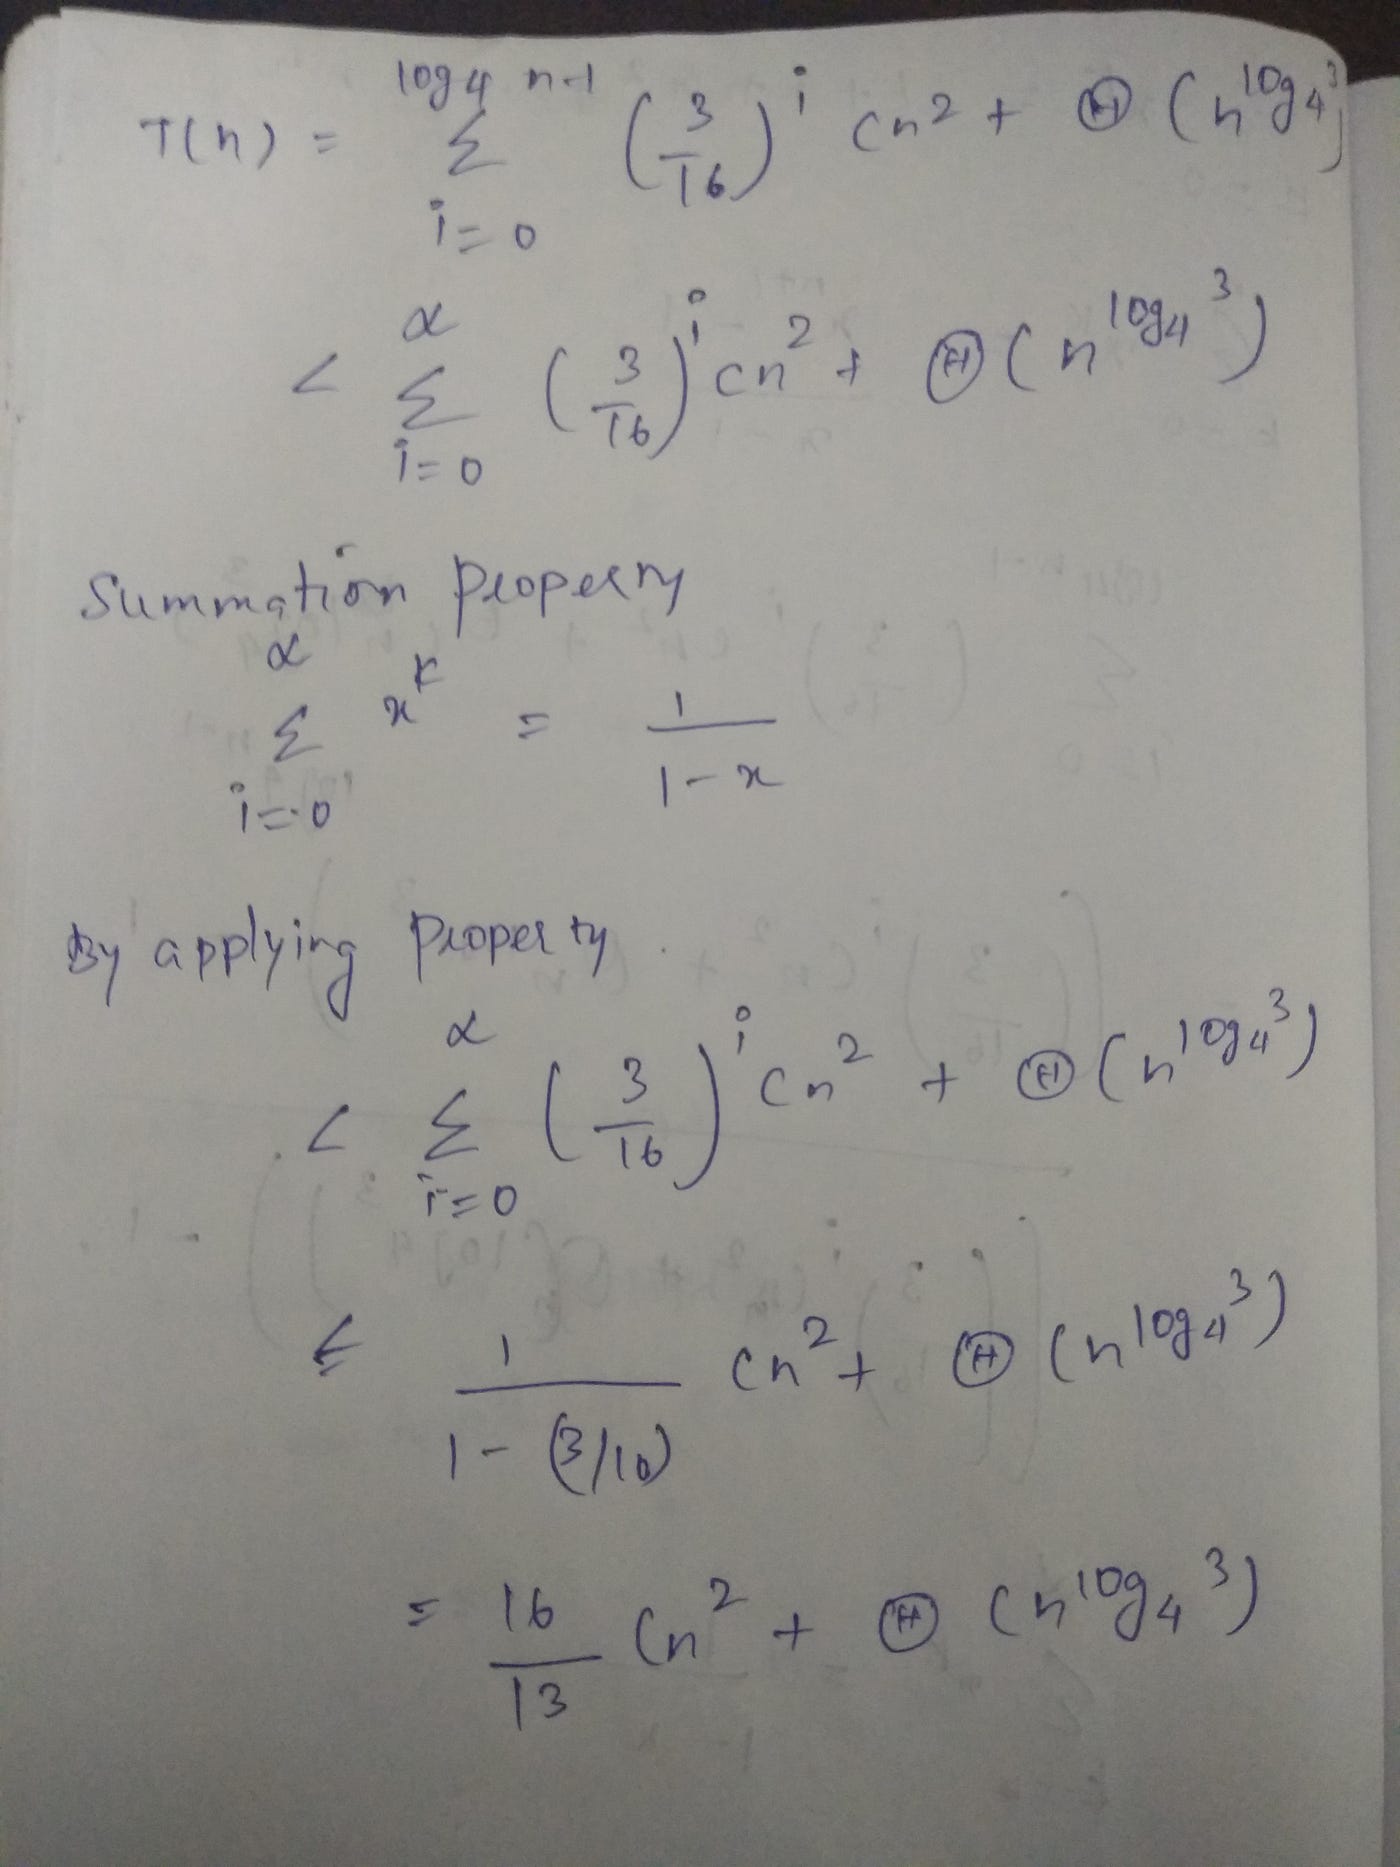 T(n) = log4 n-1 Σ i=0 (3/16)^i cn^2 + Θ (n^log4 3)
< ∝ Σ i=0 (3/16)^i cn^2 + Θ (n^log4 3)
Summation property
∝ Σ i=0 x^k = 1/1-x
By applying property.
< ∝ Σ i=0 (3/16)^i cn^2 + Θ (n^log4 3)
≤ 1/1-(3/16) cn^2 + Θ (n^log4 3)
= 16/13 cn^2 + Θ (n^log4 3)